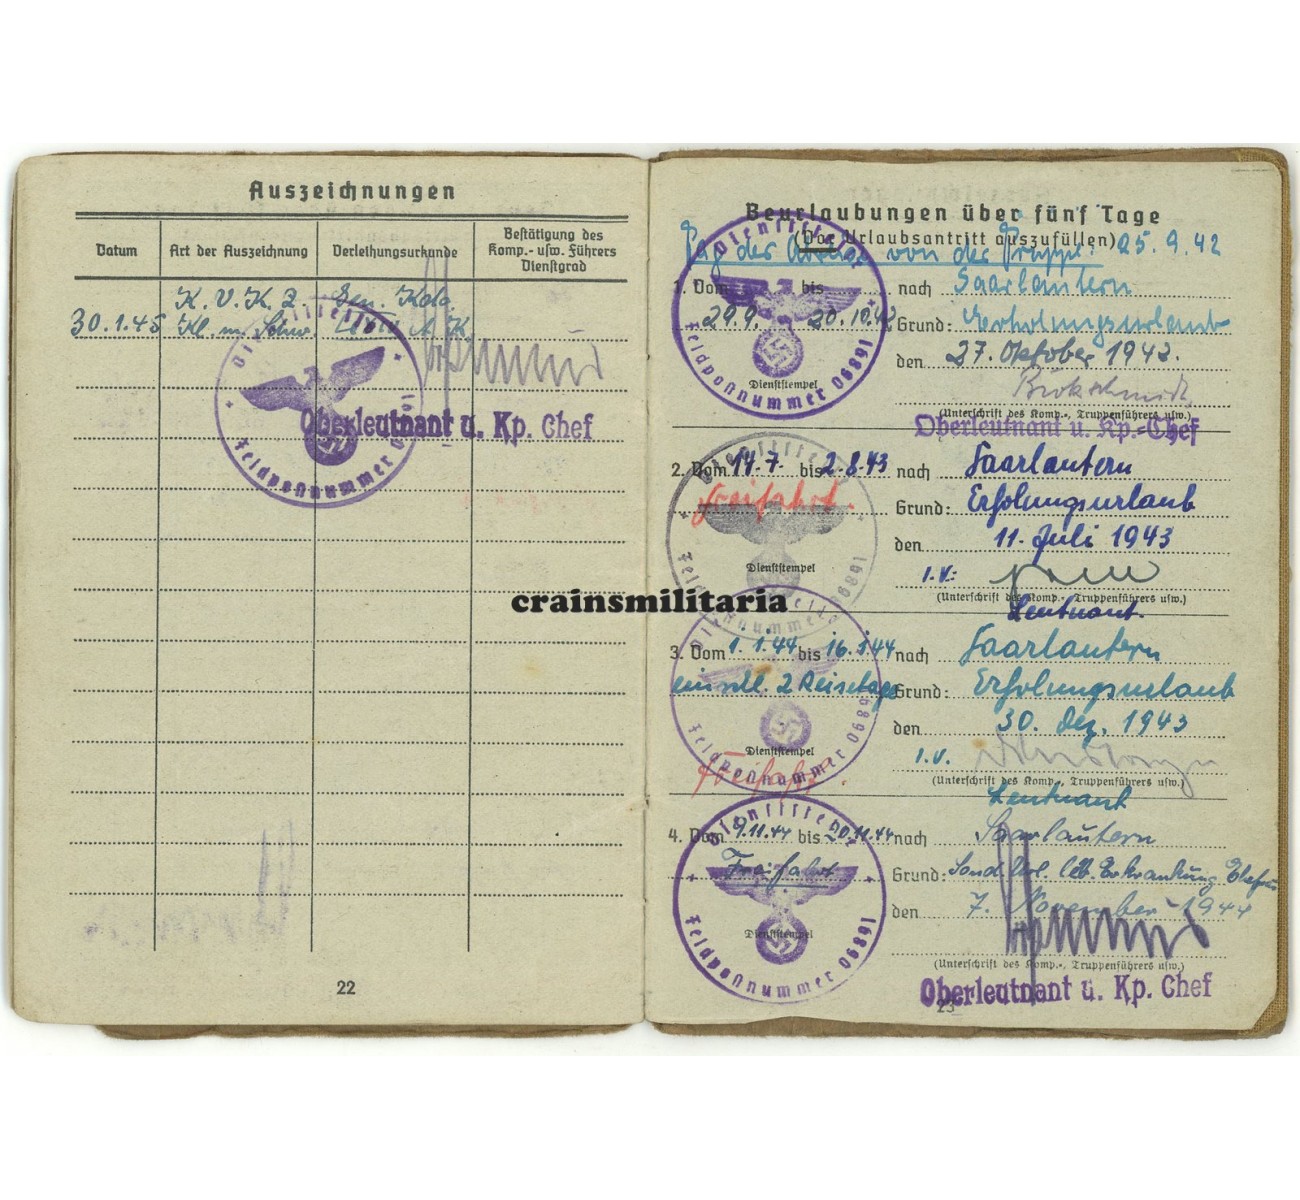 Auszeichnungen
Datum
Art der Auszeichnung
Verleihungsurkunde
Bestätigung des
Komp.- usw. Führers
Dienstgrad
K. V. K. 2.
30.1.45 Kl. m. Schw.
Dienststelle
Feldpostnummer
Oberleutnant u. Kp. Chef
22
Beurlaubungen über fünf Tage
(Vor Urlaubsantritt auszufüllen)
Tag der von der 25.9.42
Dienststelle
Feldpostnummer 06891
1. Vom bis nach Saarlautern
29.9. 20.10.42 Grund: Erholungsurlaub
den 27. Oktober 1942.
Dienststempel
(Unterschrift des Komp.-, Truppenführers usw.)
Oberleutnant u. Kp.-Chef
Dienststelle
Feldpostnummer 06891
2. Vom 14.7. bis 2.8.43 nach Saarlautern
Freifahrt. Grund: Erholungsurlaub
den 11. Juli 1943
Dienststempel
I.V.
(Unterschrift des Komp.-, Truppenführers usw.)
Leutnant.
crainsmilitaria
Dienststelle
Feldpostnummer 06891
3. Vom 1.1.44 bis 16.1.44 nach Saarlautern
einschl. 2 Reisetage Grund: Erholungsurlaub
den 30. Dez. 1943
Dienststempel
Freifahrt.
I.V.
(Unterschrift des Komp.-, Truppenführers usw.)
Leutnant
Dienststelle
Feldpostnummer 06891
4. Vom 9.11.44 bis 20.11.44 nach Saarlautern
Freifahrt Grund: Sond. Url. Erkrankung Ehefrau
den 7. November 1944
Dienststempel
(Unterschrift des Komp.-, Truppenführers usw.)
Oberleutnant u. Kp. Chef
23